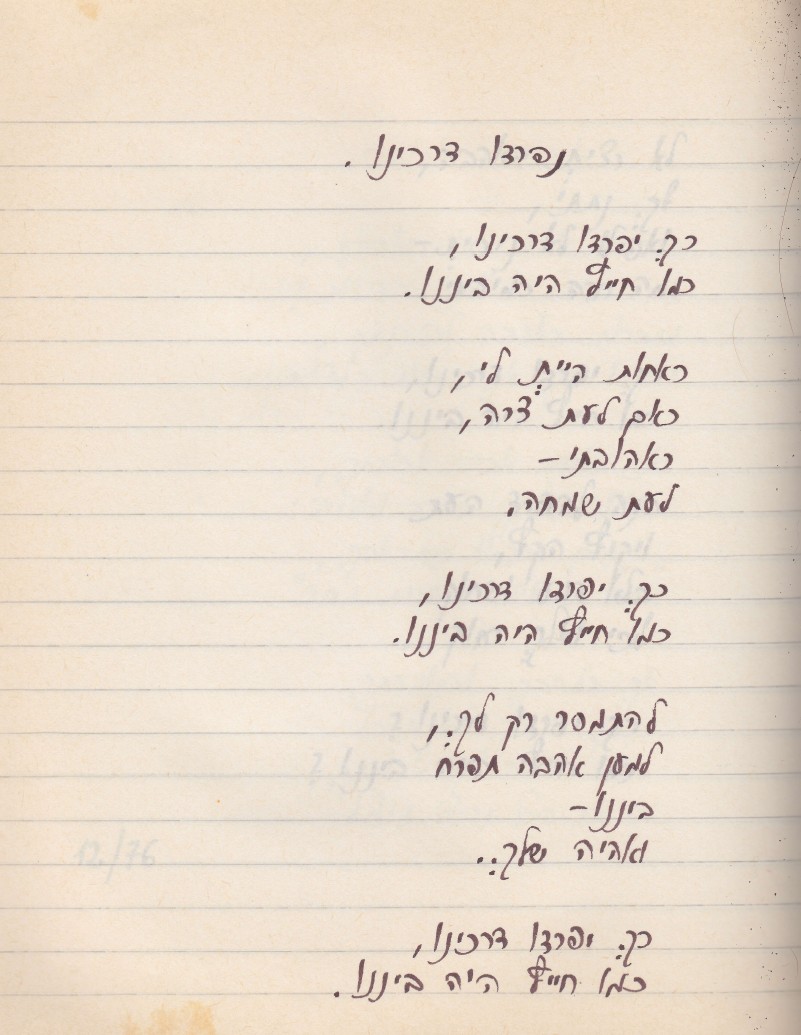 נפרדו דרכינו.
כךְ יפרדו דרכינו,
כמו חייץ היה ביננו.
כאחות הייתְ לי,
כאם לעת צרה,
כאהובתי –
לעת שמחה.
כךְ יפרדו דרכינו,
כמו חייץ היה ביננו.
להתמסר רק לךְ,
למען אהבה תפרח
ביננו –
ואהיה שלךְ.
כךְ יפרדו דרכינו,
כמו חייץ היה ביננו.